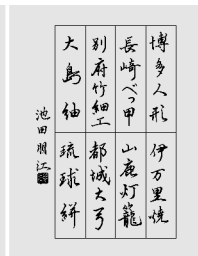 博多人形
伊万里焼
長崎べっ甲
山鹿灯籠
別府竹細工
都城大弓
大島紬
琉球絣
池田朋江